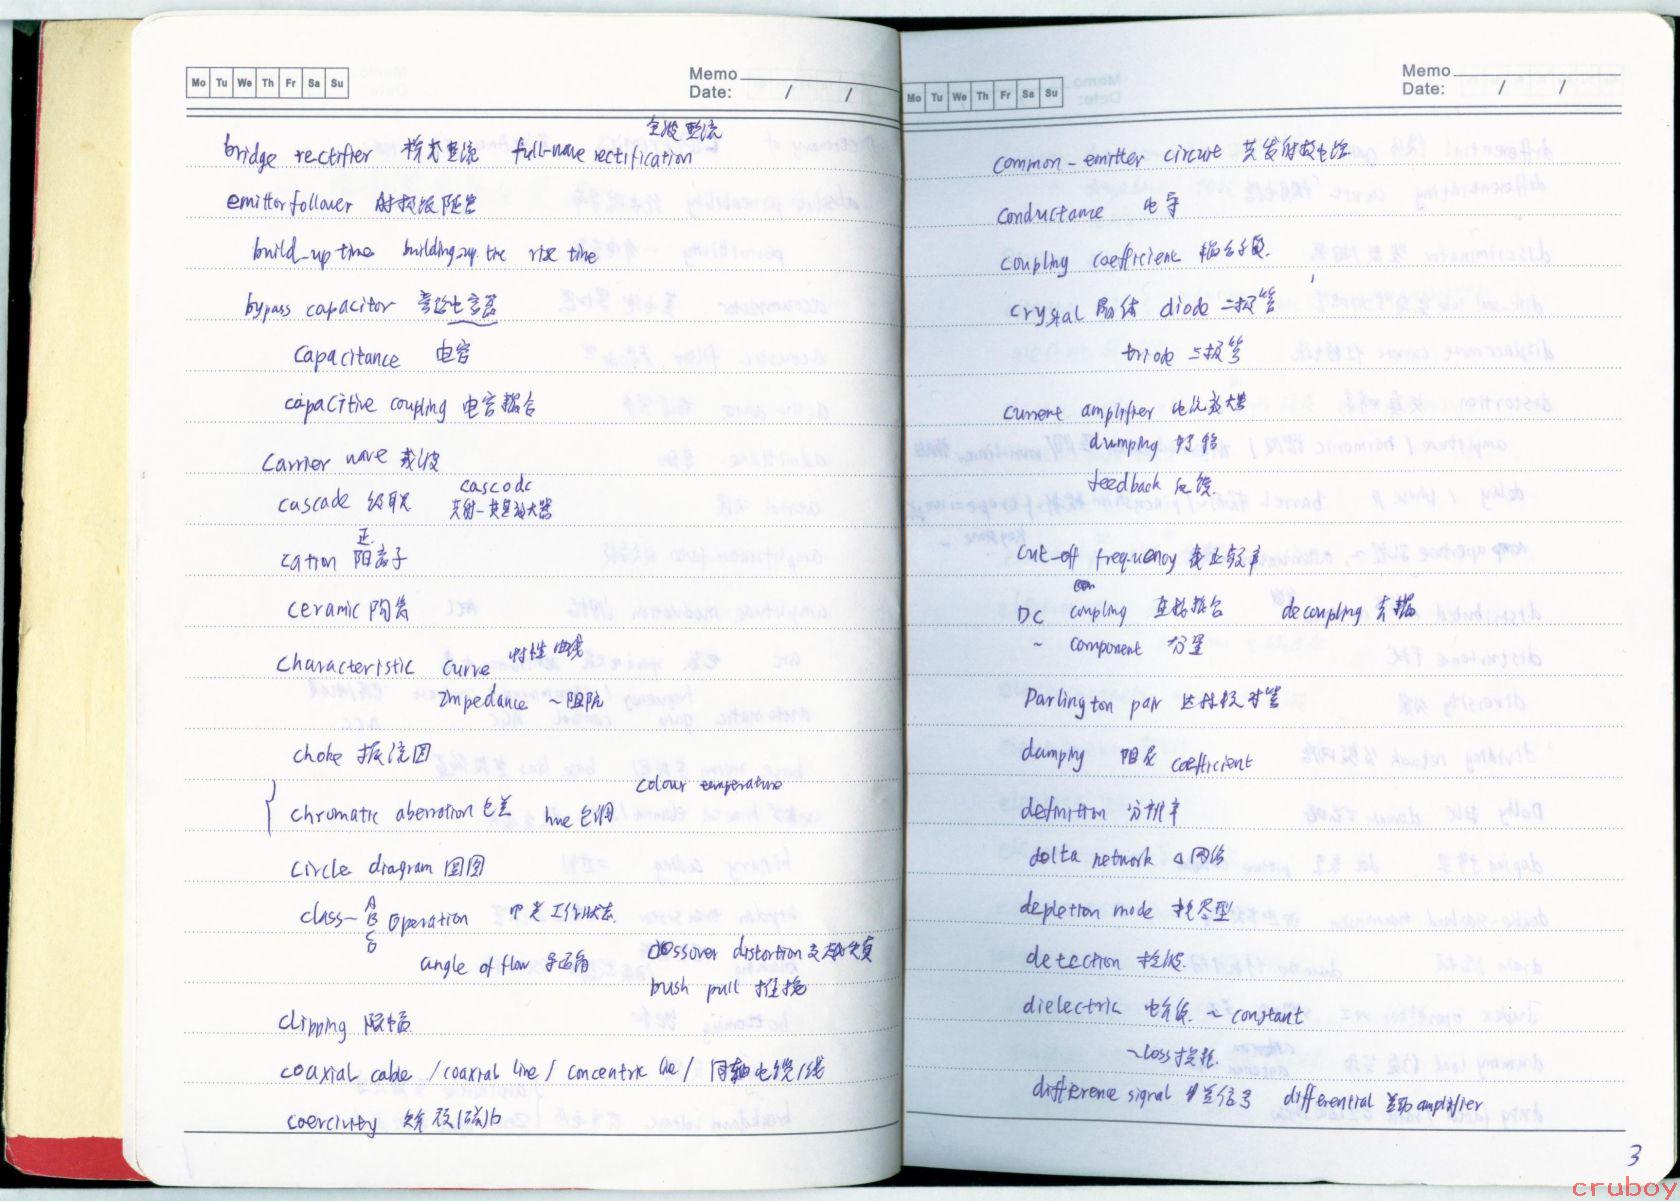 Mo Tu We Th Fr Sa Su
Memo
Date: / /
全波整流
bridge rectifier 桥式整流 full-wave rectification
emitter follower 射极
build-up time building-up time rise time
bypass capacitor 旁路电容器
capacitance 电容
capacitive coupling 电容耦合
carrier wave 载波
cascode
cascade 级联 共射-共基放大器
正
cation 阳离子
ceramic 陶瓷
characteristic curve 特性曲线
impedance ~阻抗
choke 扼流圈
colour temperature
chromatic aberration 色差 hue 色调
circle diagram 圆图
class- A B C operation 甲类工作状态
angle of flow 导通角 crossover distortion 交越失真
push pull 推挽
clipping 限幅
coaxial cable / coaxial line / concentric line / 同轴电缆/线
coercivity 矫顽(磁)力
Mo Tu We Th Fr Sa Su
Memo
Date: / /
common-emitter circuit 共发射极电路
conductance 电导
coupling coefficient 耦合系数
crystal 晶体 diode 二极管
triode 三极管
current amplifier 电流放大器
dumping
feedback 反馈
cut-off frequency 截止频率
DC coupling 直接耦合 decoupling 去耦
~ component 分量
Darlington pair 达林顿对管
damping 阻尼 coefficient
definition 分辨率
delta network △网络
depletion mode 耗尽型
detection 检波
dielectric 电介质 ~ constant
~loss 损耗
difference signal 差信号 differential 差动 amplifier
3
cruboy